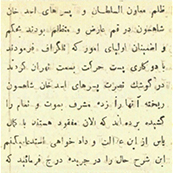 ظلم معاون السلطان و پسرهای امد خان
شاهسون در قم عارض و متظلم بودند بحکم
و اطمینان اولیای امور که تلگراف فرمودند
با دو گاری پست حرکت بسمت تهران کردند
در گوشک نصرت پسرهای امد خان شاهسون
ریخته آنها را زده مشرف بموت و تمام را
کشیده برده‌اند که الان مفقود هستند با کمال
یأس از این عدالت و داد خواهی استدعا میکنم
این شرح حال را در جریده درج فرمائید که